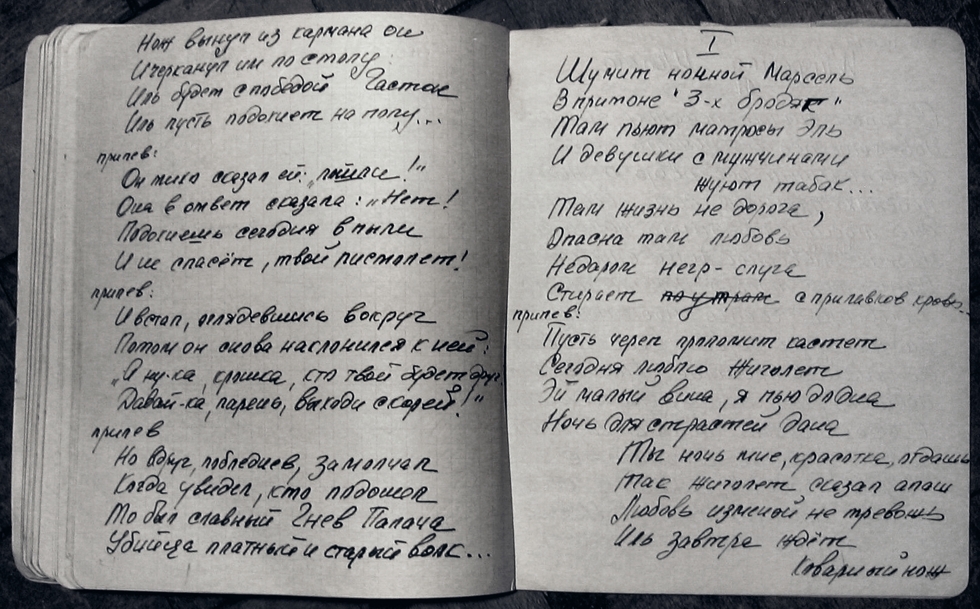 Нож вынул из кармана он
И черканул им по столу:
Иль будет с победой Гастон
Иль пусть подохнет на полу...
припев:
Он тихо сказал ей: „пошли!"
Она в ответ сказала: „Нет!
Подохнешь сегодня в пыли
И не спасёт, твой пистолет!
припев:
И встал, оглядевшись вокруг
Потом он снова наклонился к ней:
„А ну-ка, крошка, кто твой будет друг
Давай-ка, парень, выходи скорей!"
припев
Но вдруг, побледнев, замолчал
Когда увидел, кто подошол
То был славный Гнев Палача
Убийца платный и старый волк...
I
Шумит ночной Марсель
В притоне "3-х бродяг"
Там пьют матросы Эль
И девушки с мужчинами
жуют табак...
Там жизнь не дорога,
Опасна там любовь
Недаром негр-слуга
Стирает по утрам с прилавков кровь..
припев:
Пусть череп проломит кастет
Сегодня люблю Жиголет
Эй малый вина, я пью до дна
Ночь для страстей дана
Ты ночь мне, красотка, отдашь
Так Жиголет сказал апаш
Любовь изменой не тревожь
Иль завтра ждёт
Коварный нож